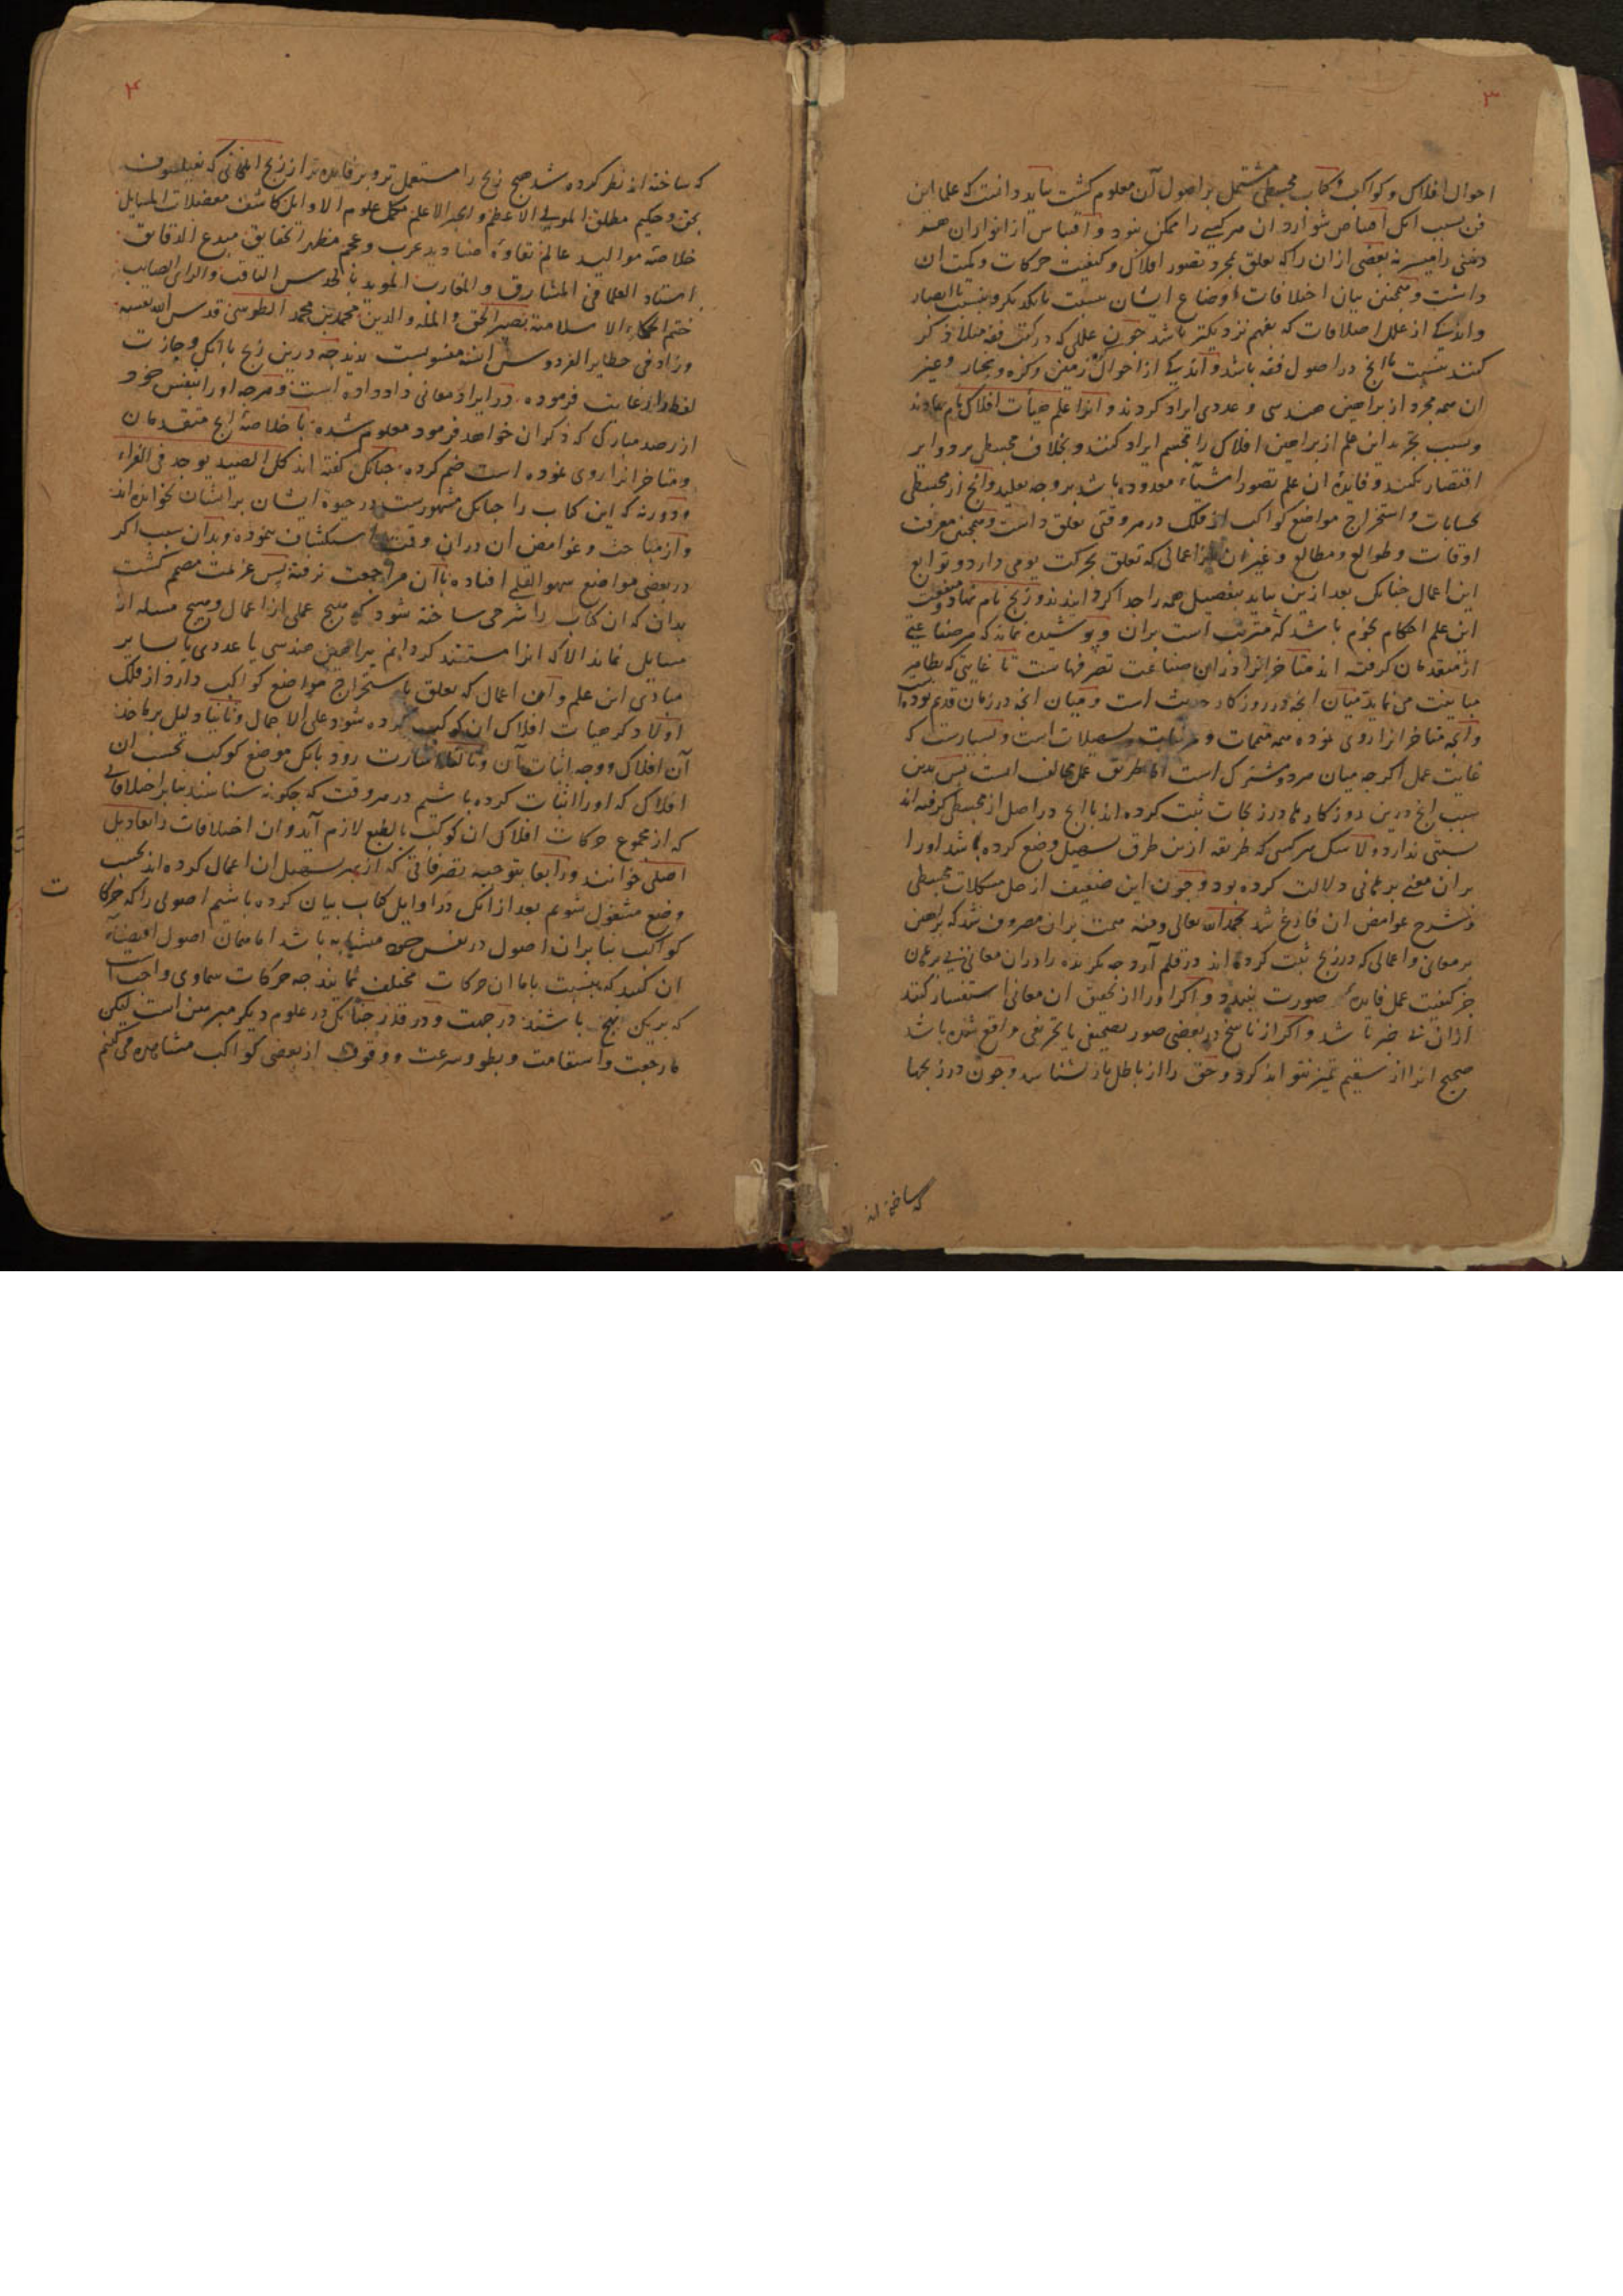 ۳
احوال افلاک و کواکب و کتاب مجسطی مشتمل بر اصول آن معلوم کشت بباید دانست که علما این
فن بسبب انک اقتناص شوارد ان هر کسی را ممکن نبود و اقتباس از انوار ان هر
ذهنی را میسر نه بعضی ازان را که تعلق بمجرد تصور افلاک و کیفیت حرکات و کمیت ان
داشت و همچنین بیان اختلافات اوضاع ایشان بنسبت بایکدیگر و بنسبت با ابصار
و اندکی از علل اختلافات که بفهم نزدیکتر باشد چون عللی که در کتب فقه مثلا ذکر
کنند بنسبت با انچ در اصول فقه باشد و اندکی از احوال زمین و کره و بخار و غیر
ان همه مجرد از براهین هندسی و عددی ایراد کردند و انرا علم هیأت افلاک نام نهادند
و بسبب تجرید این علم از براهین افلاک را مجسم ایراد کنند و بخلاف مجسطی بر دوایر
اقتصار نکنند و فایده ان علم تصور اشیاء معدوده باشد بر وجه تقلید و انچ از مجسطی
بحسابات و استخراج مواضع کواکب از فلک در هر وقتی تعلق داشت و همچنین معرفت
اوقات و طوالع و مطالع و غیر ان از اعمالی که تعلق بحرکت یومی دارد و توابع
این اعمال چنانک بعد ازین بیاید بتفصیل همه را جدا کردانیدند و زیج نام نهاد و منفعت
این علم احکام نجوم باشد که مترتب است بران و پوشیده نماند که هر صناعتی
از متقدمان کرفته اند متاخرانرا دران صناعت تصرفهاست تا غایتی که بظاهر
مباینت می نماید میان انچه در روزکار حدیث است و میان انچه در زمان قدیم بوده
و انچه متاخرانرا روی نموده همه متممات و مرتبات و تسهیلات است و بسیارست که
غایت عمل اکرچه میان هر دو مشترک است اما طریق عمل مخالف است پس بدین
سبب انچ درین روزکارها در زیجات ثبت کرده اند با انچ در اصل از مجسطی کرفته اند
نسبتی ندارد و لاشک هر کسی که طریقه ازین طرق تسهیل وضع کرده باشد او را
بران معنی برهانی دلالت کرده بود و چون این ضعیف از حل مشکلات مجسطی
و شرح غوامض ان فارغ شد بحمد الله تعالی و منه همت بران مصروف شد که براهین
بر معانی و اعمالی که در زیج ثبت کرده اند در قلم آرد چه نکرنده را دران معانی بی برهان
جز کیفیت عمل فایده صورت نبندد و اکر او را از تحقیق ان معانی استفسار کنند
ازان بی خبر باشد و اکر از ناسخ در بعضی صور تصحیفی یا تحریفی واقع شده باشد
صحیح انرا از سقیم تمیز نتواند کرد و حق را از باطل باز نشناسد و چون در زیجها
که ساخته اند
۴
که ساخته اند نظر کرده شد هیچ زیج را مستعمل تر و پر فایده تر از زیج ایلخانی که فیلسوف
بحق و حکیم مطلق المولی الاعظم و الحبر الاعلم مکمل علوم الاوایل کاشف معضلات المسایل
خلاصه موالید عالم نقاوه صنادید عرب و عجم مظهر الحقایق مبدع الدقایق
استاد العلما فی المشارق و المغارب الموید بالحدس الثاقب و الرای الصایب
ختم الحکماء الاسلامیة نصیر الحق و المله و الدین محمد بن محمد الطوسی قدس الله نفسه
وزاد فی حظایر الفردوس انسه منسوبست ندیدم چه درین زیج با انک وجازت
لفظ را رعایت فرموده در ایراد معانی داد داده است و هرچه او را بنفس خود
از رصد مبارک که ذکر ان خواهد فرمود معلوم شده با خلاصه انچ متقدمان
و متاخرانرا روی نموده است ضم کرده چنانک کفته اند کل الصید یوجد فی الفراء
و دور نه که این کتاب را چنانک مشهورست در حیوة ایشان بر ایشان نخوانده اند
و از مباحث و غوامض ان دران وقت استکشاف ننموده و بدان سبب اکر
در بعضی مواضع سهو القلمی افتاده با آن مراجعت نرفته پس عزیمت مصمم کشت
بدان که ان کتاب را شرحی ساخته شود که هیچ عملی از اعمال و هیچ مسئله از
مسایل نماند الا که انرا مستند کردانم ببراهین هندسی یا عددی یا بسایر
مبادی این علم و آن اعمال که تعلق باستخراج مواضع کواکب دارد از فلک
اولا ذکر هیات افلاک ان کوکب کرده شود علی الاجمال و ثانیا دلیل بر ماخذ
آن افلاک و وجه اثبات آن و ثالثا اشارت رود بانک موضع کوکب بحسب ان
افلاک که او را اثبات کرده باشیم در هر وقت که چکونه شناسند بنا بر اختلافاتی
که از مجموع حرکات افلاک ان کوکب بالطبع لازم آید و ان اختلافات را تعادیل
اصلی خوانند و رابعا بتوجیه تصرفاتی که از بهر تسهیل ان اعمال کرده اند بحسب
وضع مشغول شویم بعد از انک در اوایل کتاب بیان کرده باشیم اصولی را که حرکا
ت
کواکب بنا بران اصول در نفس خود متشابه باشد اما همان اصول اقتضاء
ان کنند که بنسبت باما ان حرکات مختلف نمایند چه حرکات سماوی واجبست
که بر یک نهج باشند در جهت و در قدر چنانک در علوم دیکر مبرهن است لیکن
ما رجعت و استقامت و بطو و سرعت و وقوف از بعضی کواکب مشاهده می کنیم